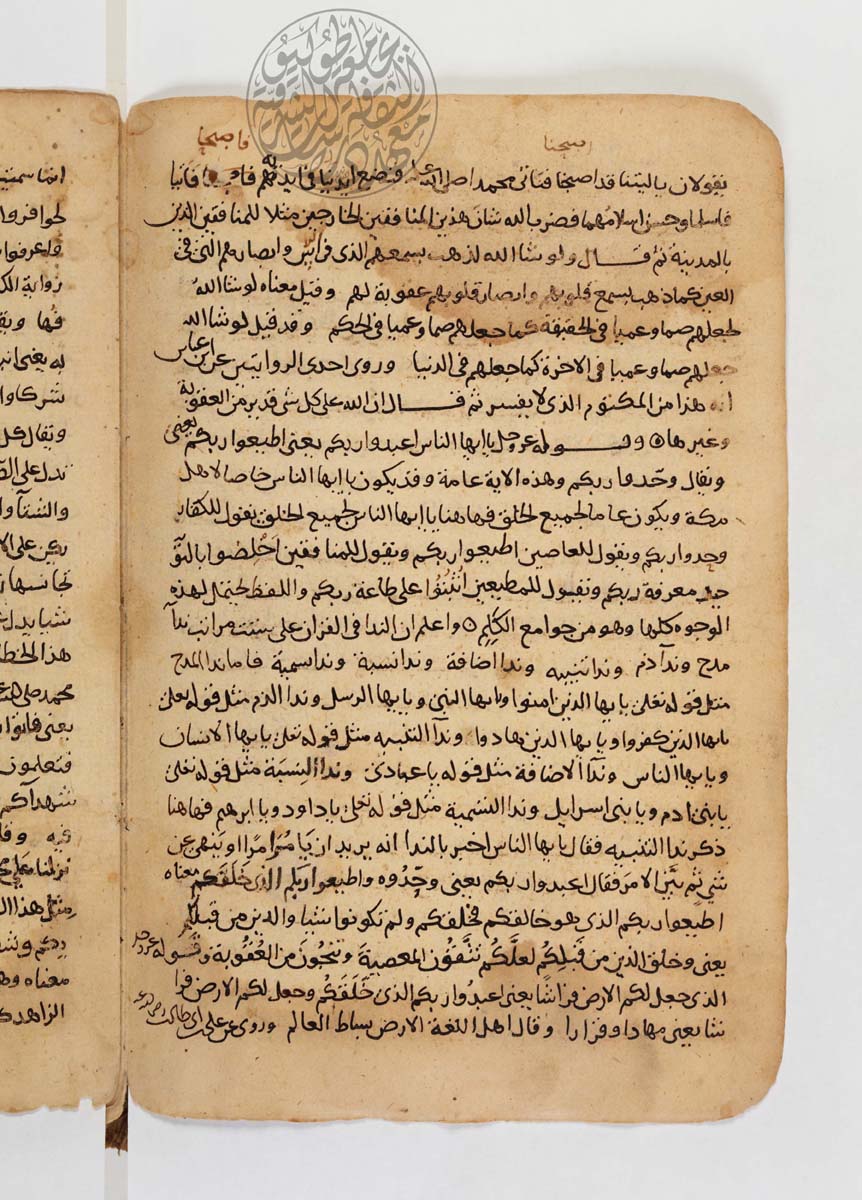 اصبحنا
فاصبحا
يقولان ياليتنا قد اصبحنا فناتى محمدا صلى الله عليه فنضع ايدينا فى يده فاصبحا فاتيا
فاسلما وحسن اسلامهما فضرب الله شان هذين المنافقين الخارجين مثلا للمنافقين الذين
بالمدينة ثم قــال ولو شا الله لذهب بسمعهم الذى فى الراس وابصارهم التى فى
العين كما ذهب بسمع قلوبهم وابصار قلوبهم عقوبة لهم وقيل معناه لو شا الله
لجعلهم صما وعميا فى الحقيقة كما جعلهم صما وعميا فى الحكم وقد قيل لو شا الله
جعلهم صما وعميا فى الاخرة كما جعلهم فى الدنيا وروى احدى الروايتين عن ابن عباس
انه هذا من المكتوم الذى لا يفسر ثم قــال ان الله على كل شى قدير من العقوبة
وغيرها ه وقــوله عز وجل يا ايها الناس اعبدوا ربكم يعنى اطيعوا ربكم يعنى
ويقال وحدوا ربكم وهذه الاية عامة وقد يكون يا ايها الناس خاصا لاهل
مكة ويكون عاما لجميع الخلق فهاهنا يا ايها الناس لجميع الخلق يقول للكفار
وحدوا ربكم ويقول للعاصين اطيعوا ربكم ويقول للمنافقين اخلصوا بالتو
حيد معرفة ربكم ويقول للمطيعين اثبتوا على طاعة ربكم واللفظ يحتمل لهذه
الوجوه كلها وهو من جوامع الكلم ه واعلم ان الندا فى القران على ست مراتب ندآ
مدح وندآ ذم وندا تنبيه وندا اضافة وندا نسبة وندا تسمية فاما ندا المدح
مثل قوله تعلى يايها الذين امنوا ويايها النبى ويايها الرسل وندا الذم مثل قوله تعلى
يايها الذين كفروا ويايها الذين هادوا وندآ التنبيه مثل قوله تعلى يايها الانسان
ويايها الناس وندآ الاضافة مثل قوله ياعبادى وندا النسبة مثل قوله تعلى
يا بنى ادم ويا بنى اسرايل وندا التسمية مثل قوله تعلى يا داود ويا ابرهيم فهاهنا
ذكر ندا التنبيه فقال يايها الناس اخبر بالندا انه يريد ان يامر امرا او ينهى عن
شى ثم بين الامر فقال اعبدوا ربكم يعنى وحدوه واطيعوا ربكم الذى خلقكم معناه
اطيعوا ربكم الذى هو خالقكم فخلقكم ولم تكونوا شيا والذين من قبلكم
يعنى وخلق الذين من قبلكم لعلكم تتقون المعصية وتنجون من العقوبة وقــوله عز وجل
الذى جعل لكم الارض فراشا يعنى اعبدوا ربكم الذى خلقكم وجعل لكم الارض فرا
شا يعنى مهادا وقرارا وقال اهل اللغة الارض بساط العالم وروى عن على بن ابى طالب رضى الله عنه